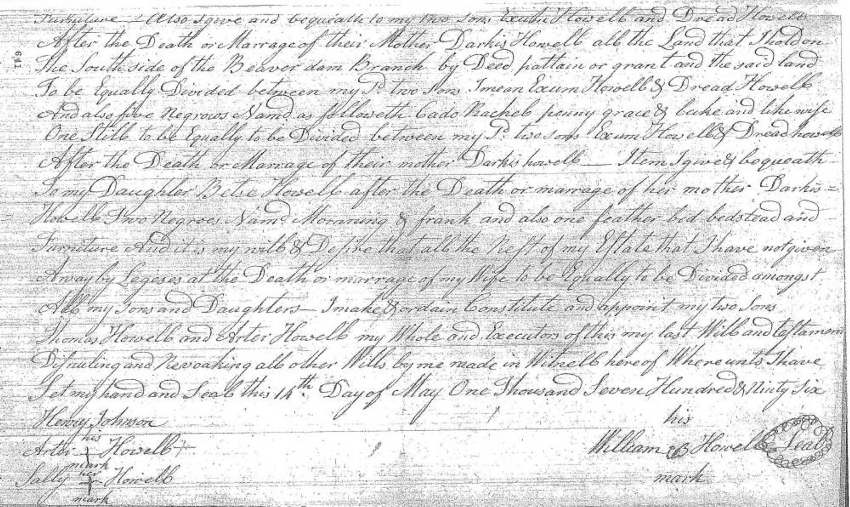 Furniture Also I give and bequeath to my two Sons Exum Howell and Dread Howell
After the Death or Marrage of their Mother Darkis Howell all the Land that I hold on
the South side of the Beaverdam Branch by Deed pattain or grant and the said land
To be Equally Divided between my Sd two Sons I mean Exum Howell & Dread Howell
And also five Negrows Namd as followeth Cado Rachel penny grace & and likewise
One Still to be Equally to be Divided between my Sd two sons Exum Howell & Dread howell
After the Death or Marrage of their mother Darkis howell — Item I give & bequeath
To my Daughter Betse Howell after the Death or marrage of her mother Darkis =
Howell Two Negroes Namd Morning & frank and also one feather bed bedstead and
Furniture And it is my will & Desire that all the Rest of my Estate that I have not given
Away by Legeses at the Death or marrage of my Wife to be Equally to be Divided amongst
All my Sons and Daughters — I make & ordain Constitute and appoint my two Sons
Thomas Howell and Arter Howell my Whole and Executors of this my last Will and testament
Disnuling and Revoaking all other Wills by me made in Witness hereof Where unto I have
Set my hand and Seal this 14th Day of May One Thousand Seven Hundred & Ninty Six
Henry Johnson
his
Arter Howell +
mark
William B Howell Seal
his
mark
Sally Howell
her
mark
641